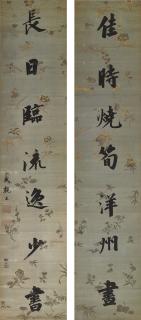 佳時燒筍洋州畫
長日臨流逸少書